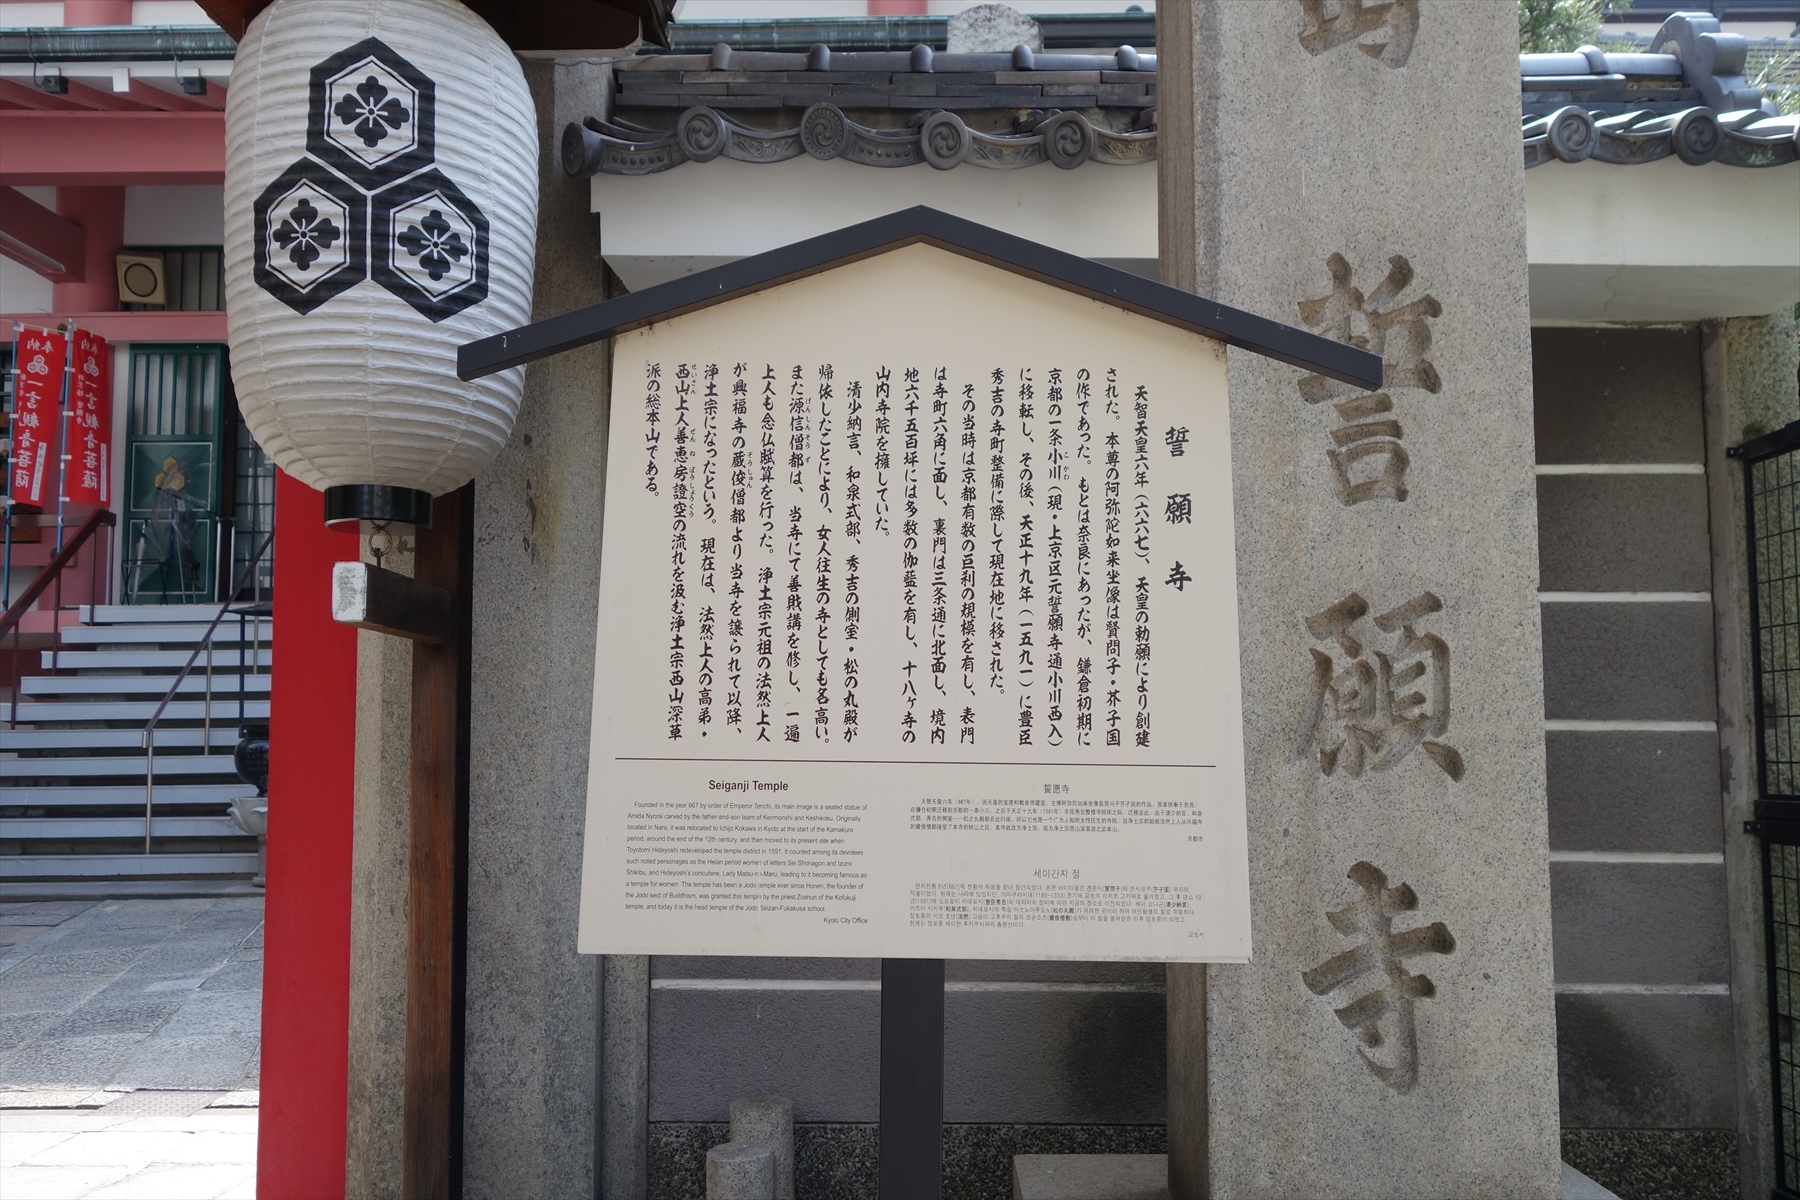 誓願寺
天智天皇六年（六六七）、天皇の勅願により創建
された。本尊の阿弥陀如来坐像は賢問子・芥子国
の作であった。もとは奈良にあったが、鎌倉初期に
京都の一条小川（現・上京区元誓願寺通小川西入）
に移転し、その後、天正十九年（一五九一）に豊臣
秀吉の寺町整備に際して現在地に移された。
その当時は京都有数の巨刹の規模を有し、表門
は寺町六角に面し、裏門は三条通に北面し、境内
地六千五百坪には多数の伽藍を有し、十八ヶ寺の
山内寺院を擁していた。
清少納言、和泉式部、秀吉の側室・松の丸殿が
帰依したことにより、女人往生の寺としても名高い。
また源信僧都は、当寺にて善財講を修し、一遍
上人も念仏賦算を行った。浄土宗元祖の法然上人
が興福寺の蔵俊僧都より当寺を譲られて以降、
浄土宗になったという。現在は、法然上人の高弟・
西山上人善恵房證空の流れを汲む浄土宗西山深草
派の総本山である。
Seiganji Temple
Founded in the year 667 by order of Emperor Tenchi, its main image is a seated statue of
Amida Nyorai carved by the father-and-son team of Kenmonshi and Keshikoku. Originally
located in Nara, it was relocated to Ichijo Kokawa in Kyoto at the start of the Kamakura
period, around the end of the 12th century, and then moved to its present site when
Toyotomi Hideyoshi redeveloped the temple district in 1591. It counted among its devotees
such noted personages as the Heian period women of letters Sei Shonagon and Izumi
Shikibu, and Hideyoshi's concubine, Lady Matsu-no-Maru, leading to it becoming famous as
a temple for women. The temple has been a Jodo temple ever since Honen, the founder of
the Jodo sect of Buddhism, was granted this temple by the priest Zoshun of the Kofukuji
temple, and today it is the head temple of the Jodo Seizan-Fukakusa school.
Kyoto City Office
誓愿寺
京都市
세이간지 절
교토시
誓願寺
奉納
一言観音菩薩
奉納
一言観音菩薩